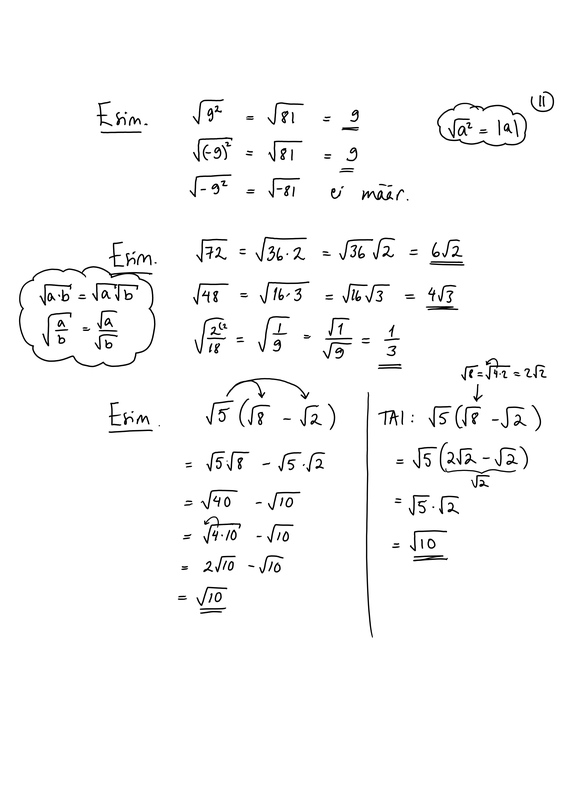 ⑪
Esim. √9² = √81 = 9
√a² = |a|
√(-9)² = √81 = 9
√-9² = √-81 ei määr.
Esim. √72 = √36·2 = √36 √2 = 6√2
√a·b = √a √b
√48 = √16·3 = √16 √3 = 4√3
√a/b = √a/√b
√2⁽²/18 = √1/9 = √1/√9 = 1/3
√8 = √4·2 = 2√2
Esim. √5 (√8 - √2)
= √5·√8 - √5·√2
= √40 - √10
= √4·10 - √10
= 2√10 - √10
= √10
TAI: √5 (√8 - √2)
= √5 (2√2 - √2)
√2
= √5·√2
= √10